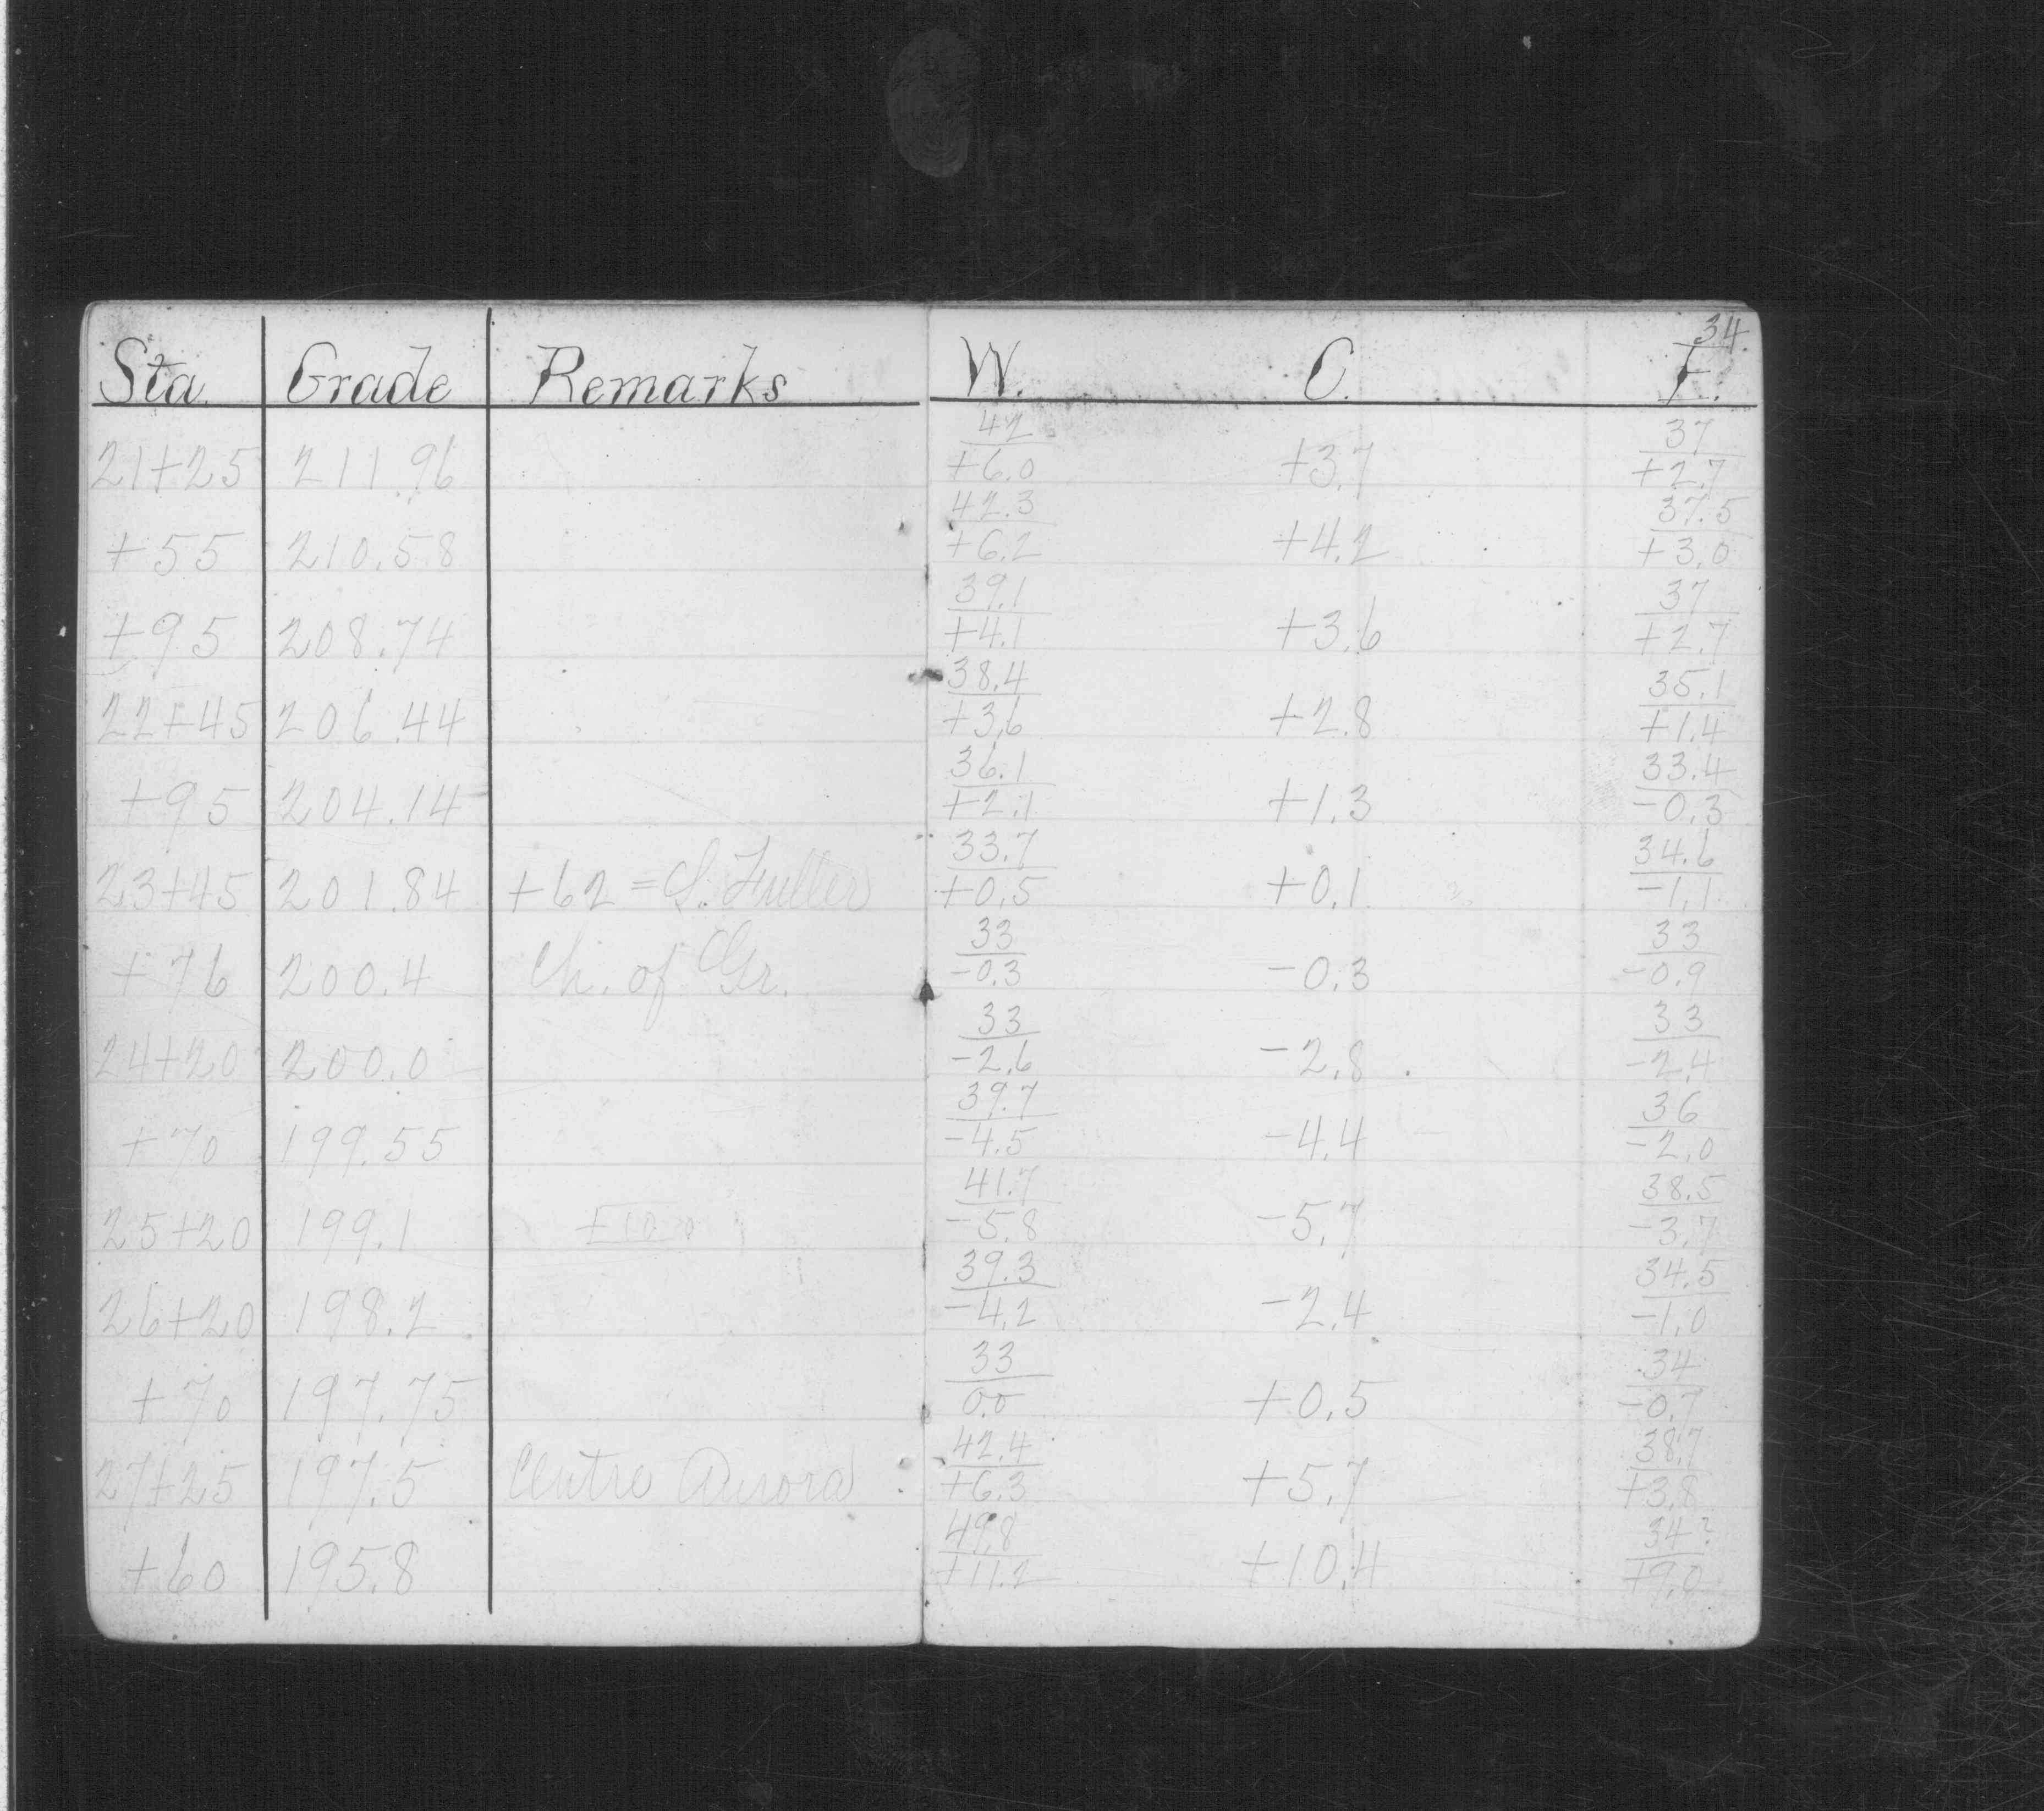 34
Sta. Grade Remarks W. C. E.
42 37
21+25 211.96 +6.0 +3.7 +2.7
42.3 37.5
+55 210.58 +6.2 +4.2 +3.0
39.1 37
+95 208.74 +4.1 +3.6 +2.7
38.4 35.1
22+45 206.44 +3.6 +2.8 +1.4
36.1 33.4
+95 204.14 +2.1 +1.3 -0.3
33.7 34.6
23+45 201.84 +62 = S. Fuller +0.5 +0.1 -1.1
33 33
+76 200.4 Ch. of Gr. -0.3 -0.3 -0.9
33 33
24+20 200.0 -2.6 -2.8 -2.4
39.7 36
+70 199.55 -4.5 -4.4 -2.0
41.7 38.5
25+20 199.1 -5.8 -5.7 -3.7
39.3 34.5
26+20 198.2 -4.2 -2.4 -1.0
33 34
+70 197.75 0.0 +0.5 -0.7
42.4 38.7
27+25 197.5 Centre Aurora +6.3 +5.7 +3.8
49.8 34?
+60 195.8 +11.2 +10.4 +9.0